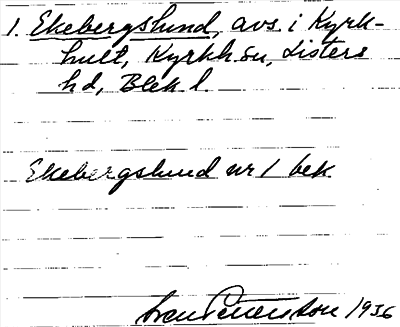 1. Ekebergslund, avs. i Kyrk-
hult, Kyrkh. sn, Listers
hd, Blek. l.
Ekebergslund nr 1 bek.
Sven Petersson 1936